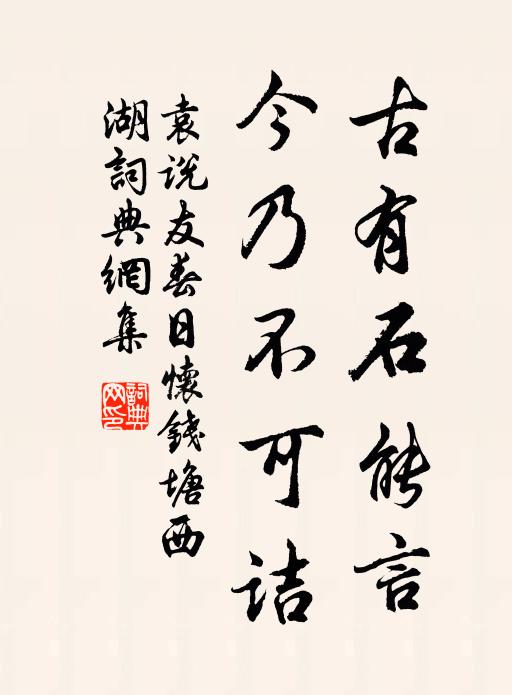 古有石能言
今乃不可詰
袁说友春日懷錢塘西
湖詞典網集
詞典
网印